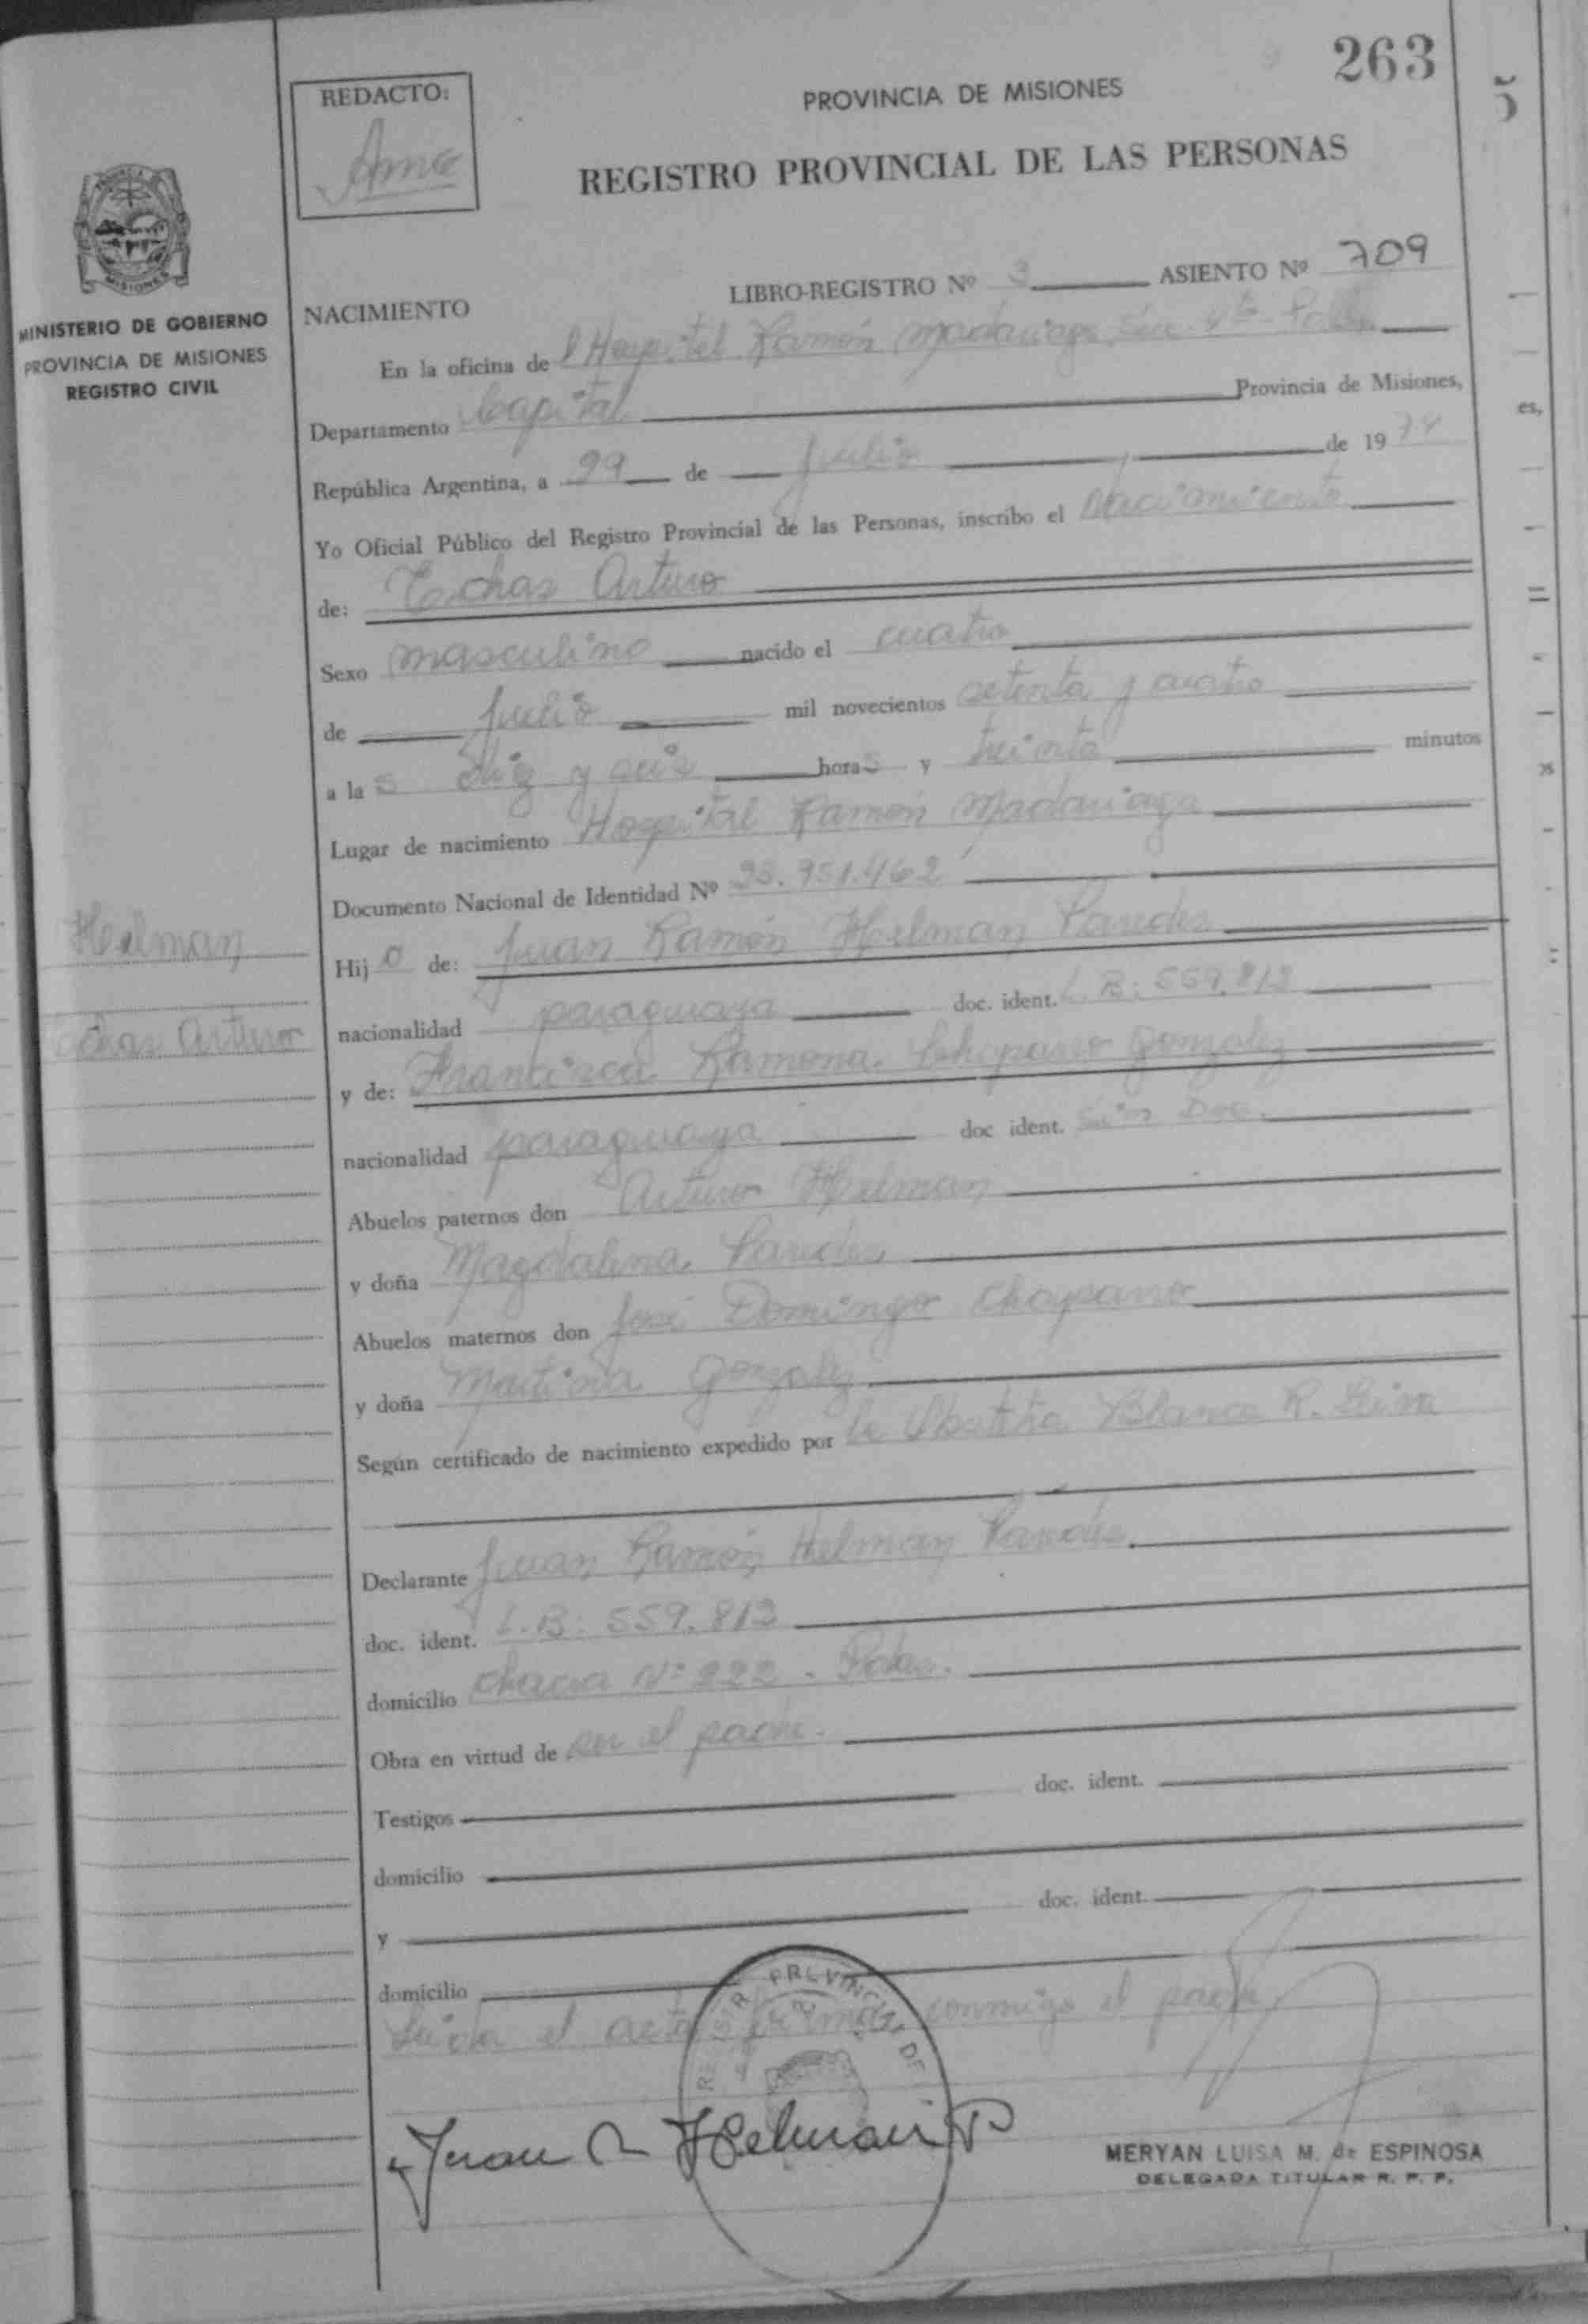 263
REDACTO:
PROVINCIA DE MISIONES
REGISTRO PROVINCIAL DE LAS PERSONAS
MISIONES
MINISTERIO DE GOBIERNO
PROVINCIA DE MISIONES
REGISTRO CIVIL
NACIMIENTO
LIBRO-REGISTRO Nº 3 ASIENTO Nº 709
En la oficina de l Hospital Ramón Madariaga
Departamento Capital Provincia de Misiones,
República Argentina, a 29 de Julio de 19 74
Yo Oficial Público del Registro Provincial de las Personas, inscribo el Nacimiento
de: Arturo
Sexo masculino nacido el cuatro
de Julio mil novecientos setenta y cuatro
a la s diez y seis hora s y treinta minutos
Lugar de nacimiento Hospital Ramón Madariaga
Documento Nacional de Identidad Nº 23.951.462
Helman
Hij o de: Juan Ramón Helman Paredes
nacionalidad paraguaya doc. ident. L.B: 559.813
Arturo
y de: Francisca Ramona Chaparro Gonzalez
nacionalidad paraguaya doc ident. Sin Doc.
Abuelos paternos don Arturo Helman
y doña Magdalena Paredes
Abuelos maternos don José Domingo Chaparro
y doña Martina Gonzalez
Según certificado de nacimiento expedido por la Obstetra Blanca R. Leiva
Declarante Juan Ramón Helman Paredes
doc. ident. L.B: 559.813
domicilio Chacra Nº 222 - Pdas.
Obra en virtud de ser el padre.
Testigos doc. ident.
domicilio
y doc. ident.
domicilio
Leida el acta firma conmigo el padre
Juan R Helman P
MERYAN LUISA M. de ESPINOSA
DELEGADA TITULAR R. P. P.